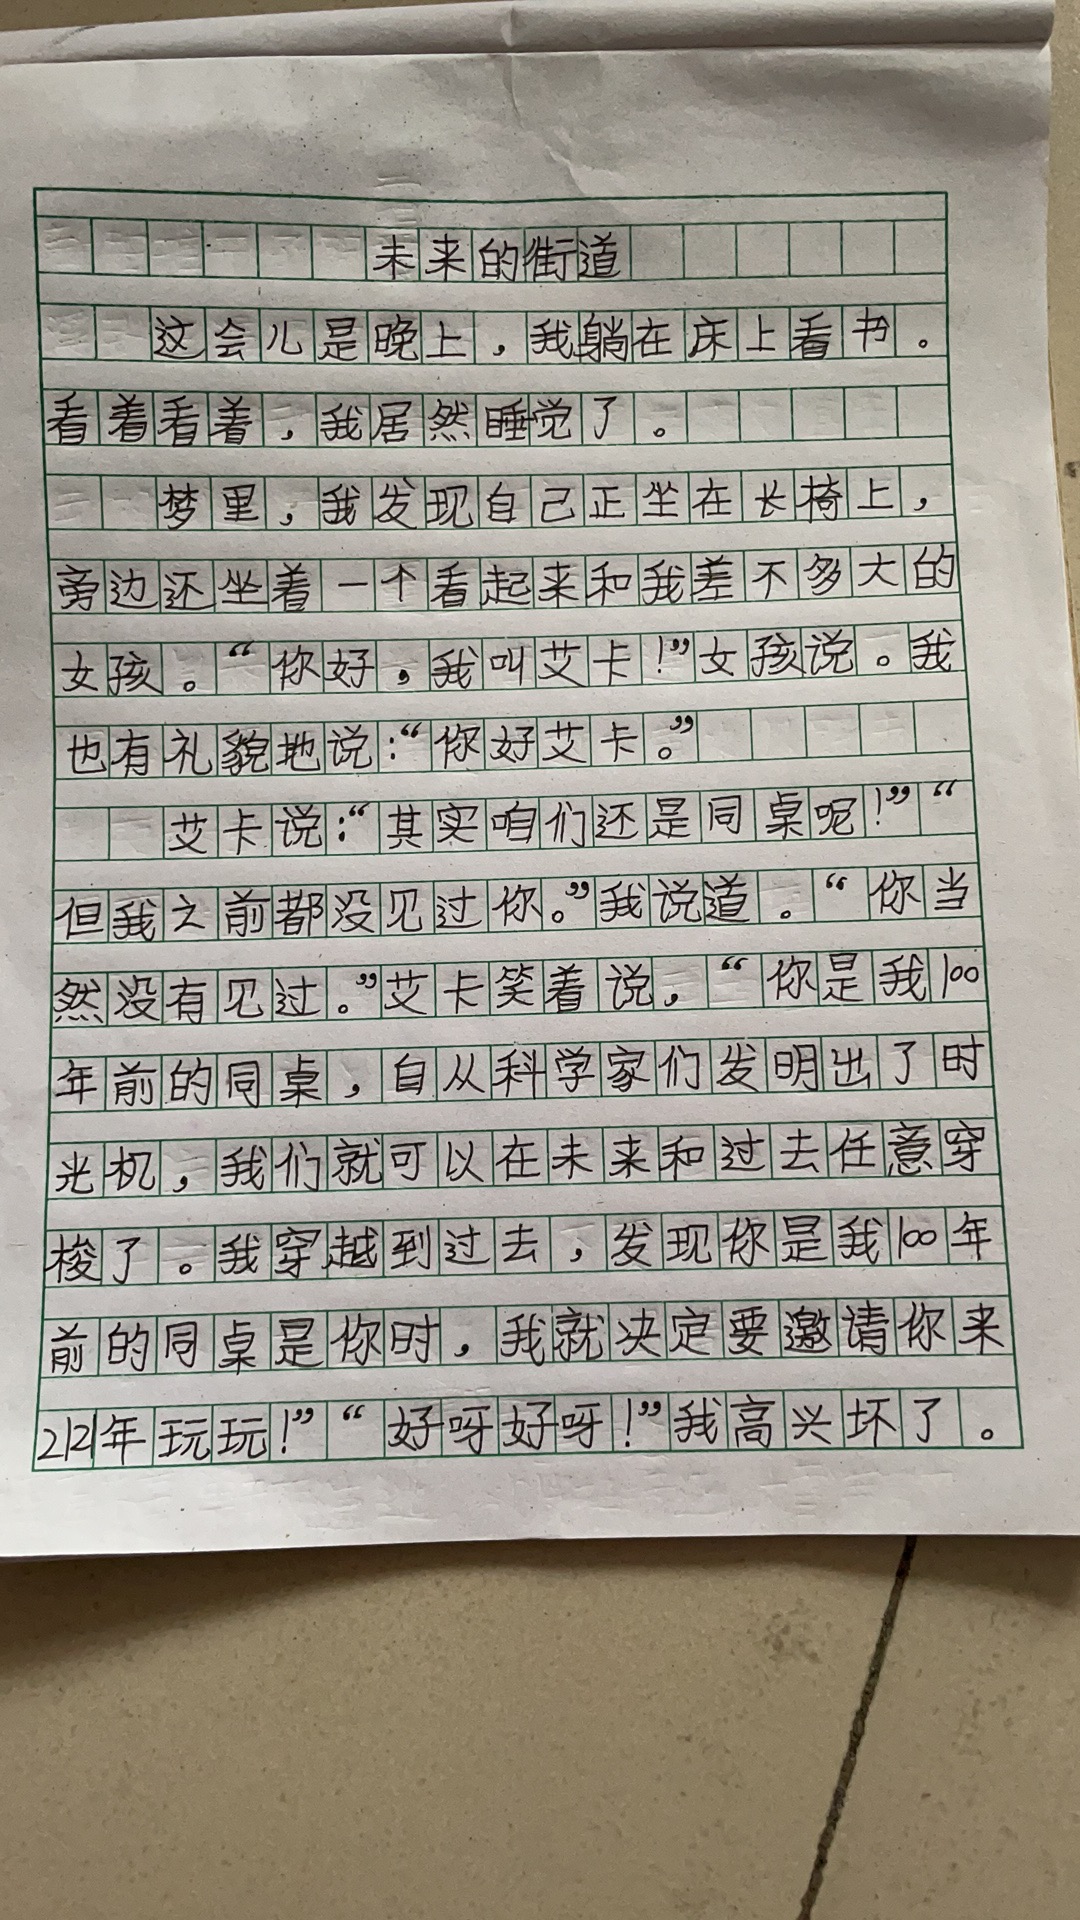 未来的街道
这会儿是晚上，我躺在床上看书。
看着看着，我居然睡觉了。
梦里，我发现自己正坐在长椅上，
旁边还坐着一个看起来和我差不多大的
女孩。“你好，我叫艾卡！”女孩说。我
也有礼貌地说：“你好艾卡。”
艾卡说：“其实咱们还是同桌呢！”“
但我之前都没见过你。”我说道。“你当
然没有见过。”艾卡笑着说，“你是我100
年前的同桌，自从科学家们发明出了时
光机，我们就可以在未来和过去任意穿
梭了。我穿越到过去，发现你是我100年
前的同桌是你时，我就决定要邀请你来
2121年玩玩！”“好呀好呀！”我高兴坏了。